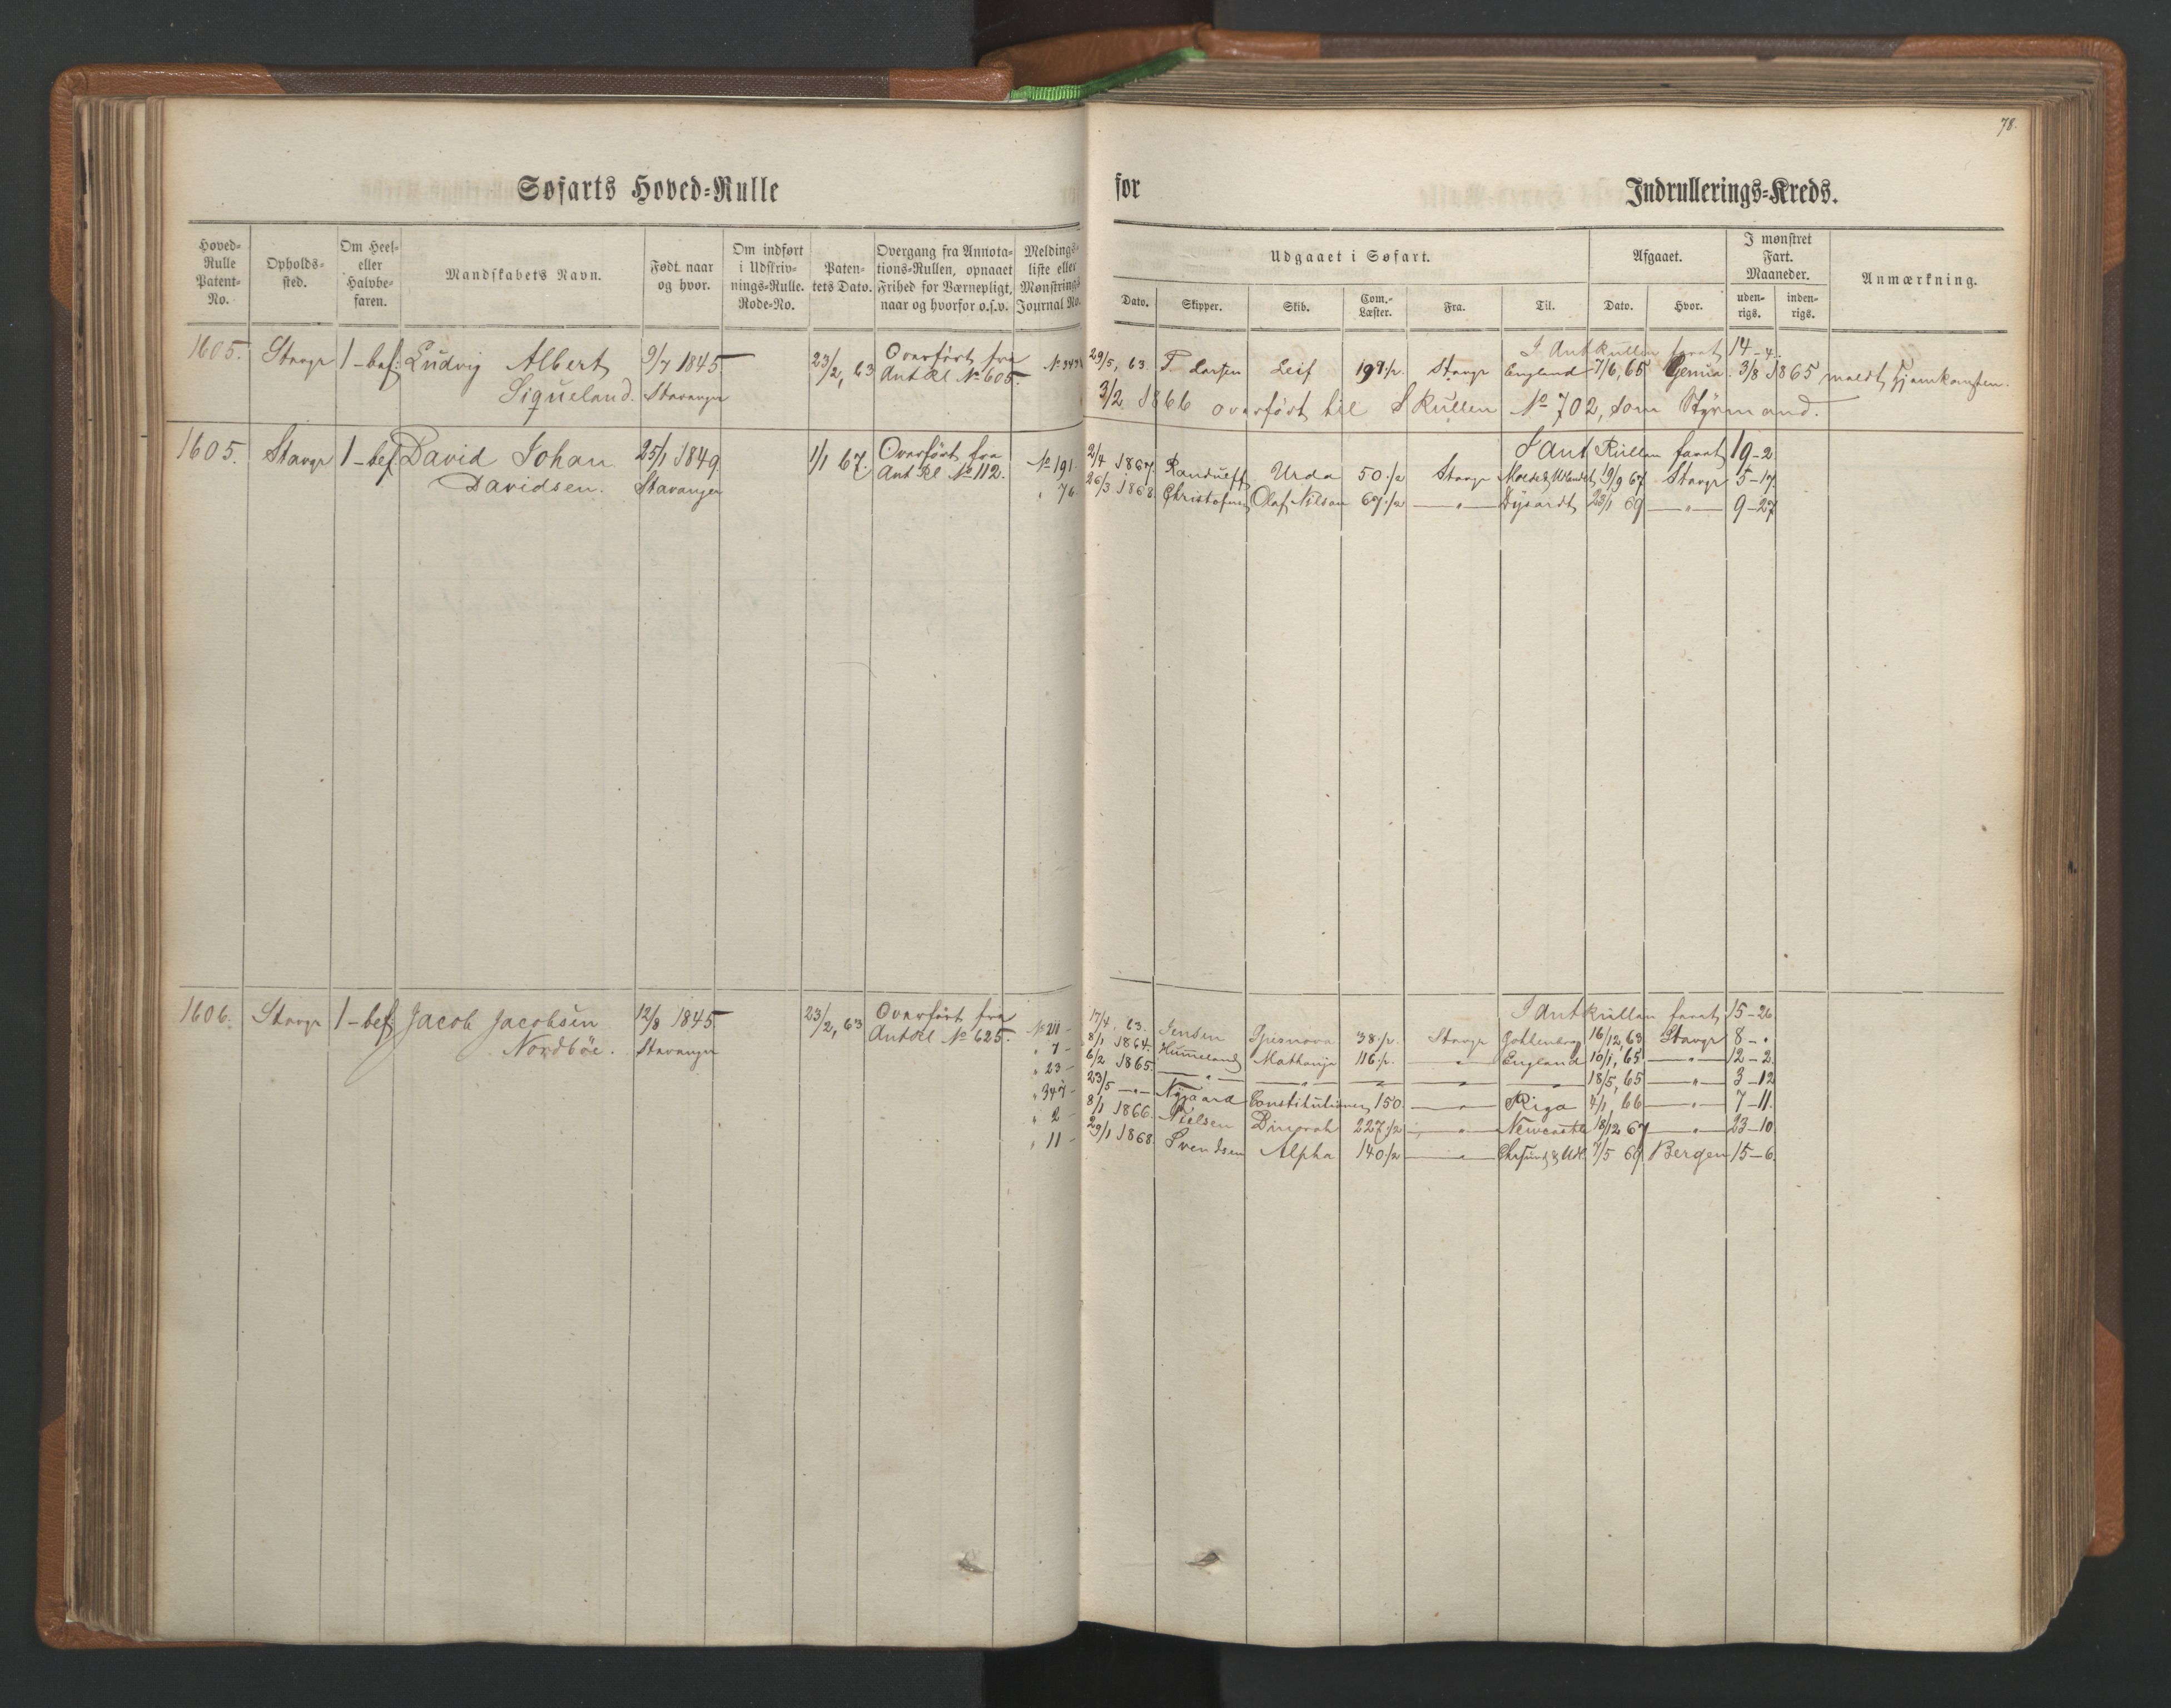 78.
Søfarts Hoved-Rulle for Indrullerings-Kreds.
Hoved-Rulle Patent-No. Opholds-sted. Om Heel- eller Halvbe-faren. Mandskabets Navn. Født naar og hvor. Om indført i Udskriv-nings-Rulle. Rode-No. Paten-tets Dato. Overgang fra Annota-tions-Rullen, opnaaet Frihed for Værnepligt, naar og hvorfor o.s.v. Meldings-liste eller Mønstrings Journal No.
Udgaaet i Søfart. Afgaaet. I mønstret Fart. Maaneder. Anmærkning.
Dato. Skipper. Skib. Com.-Læster. Fra. Til. Dato. Hvor. uden-rigs. inden-rigs.
I Antrullen faret 14-4.
1605. Stavgr 1-bef: Ludvig Albert 9/7 1845 23/2, 63 Overført fra No 343 29/5, 63. T. Larsen Leif 197 1/2 Stavgr England 7/6, 65 3/8 1865 meldt Hjemkomsten.
Siqueland. Stavanger Ant Rl No 605.
3/2 1866 overført til S Rullen No 702, som Styrmand.
I Ant Rullen faret 19-2
1605. Stavgr 1-bef David Johan 25/1 1849. 1/1 67. Overført fra No 191. 2/4 1867 Randueff Urda 50 1/2 Stavgr Molde & Udlandet 19/9 67 Stavgr 5-17
Davidsen. Stavanger Ant Rl No 112. " 76. 26/3 1868 Christofersen Olaf Nilsen 67 1/2 —"— Dysardt 28/1 69 —"— 9-27
I Antrullen faret 15-26
1606. Stavgr 1-bef Jacob Jacobsen 12/8 1845 23/2, 63 Overført fra No 211 - 17/4, 63. Jensen 38 1/2 Stavgr Gothenborg 16/12, 63 Stavgr 8-"
Nordbøe. Stavanger Ant Rl No 625. " 7 - 8/1 1864. Hummeland Mathanja 116 1/2 —"— England 10/1, 65 —"— 12-2
" 23 - 6/2 1865. —"— —"— — — — 18/5, 65 —"— 3-12
" 347 - 23/5 —"— Nygaard Constitutionen 150 —"— Riga 4/1, 66 —"— 7-11.
" 2 - 8/1 1866. Nielsen Dinorah 227 1/2 —"— Newcastle 18/12 67 —"— 23-10
" 11 - 29/1 1868 Svendsen Alpha 140 1/2 —"— Chrsund & Udl. 7/5 69 Bergen 15-6.